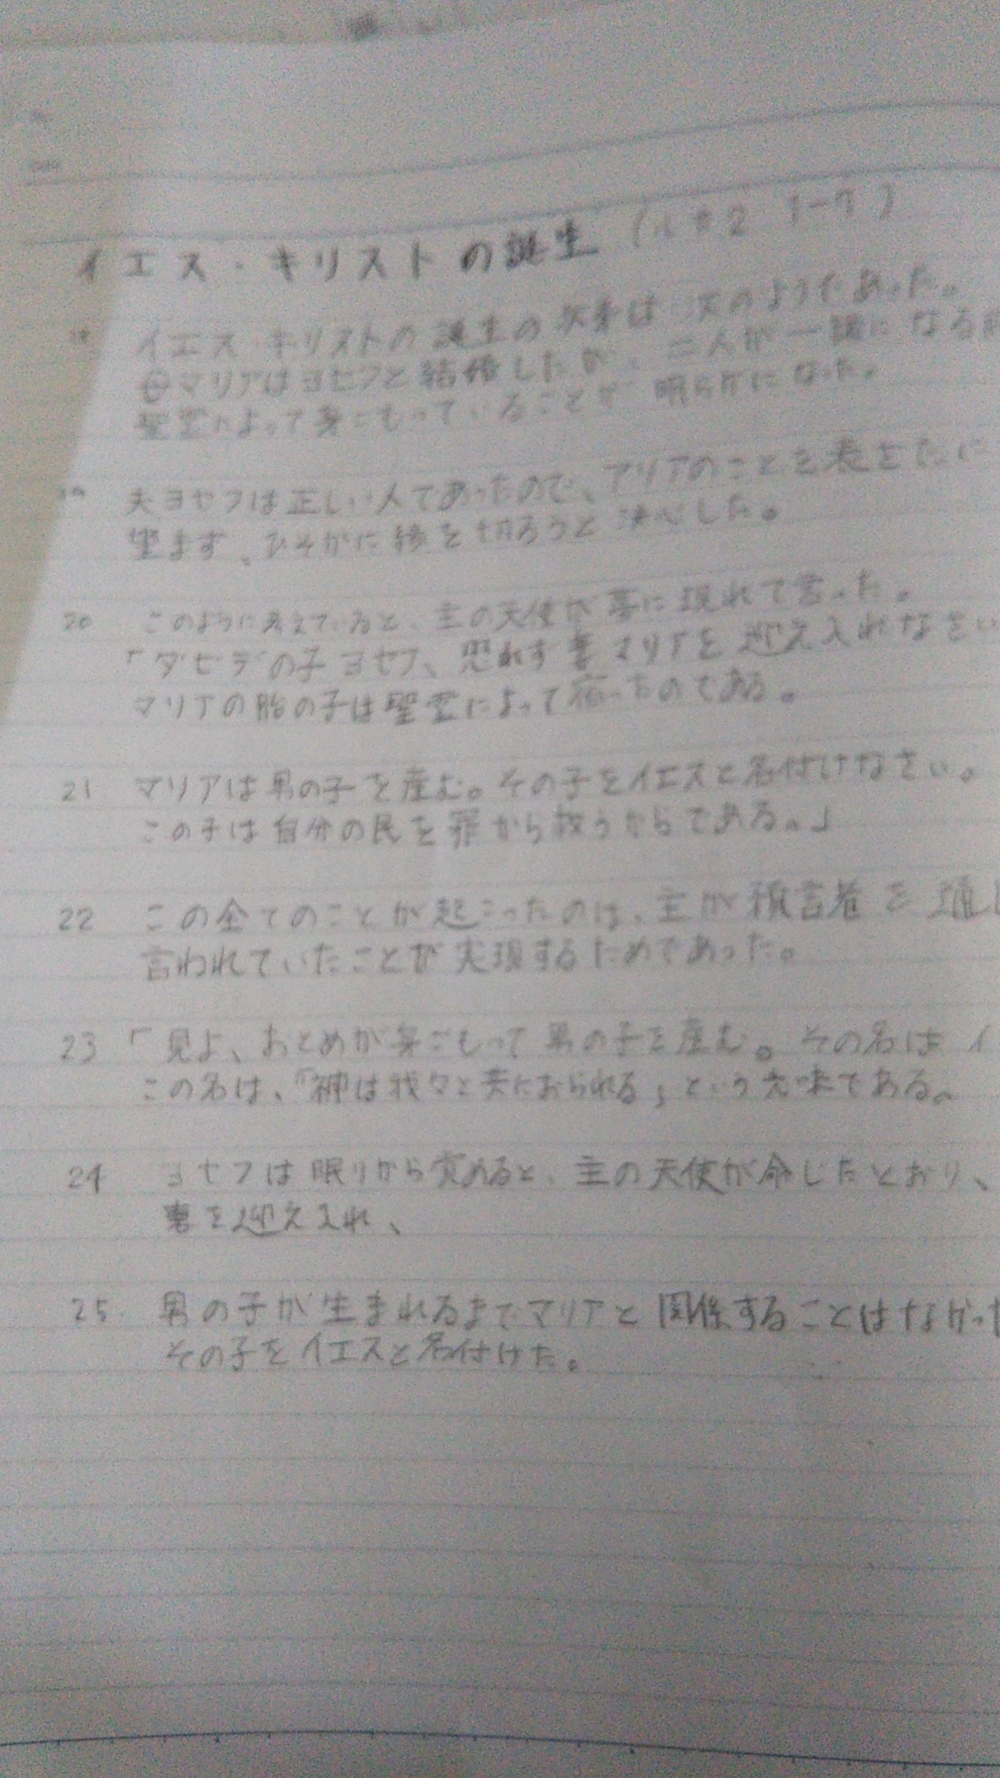 イエス・キリストの誕生 (ルカ2 1-7)
18 イエス・キリストの誕生の次第は次のようであった。
母マリアはヨセフと結婚したが、二人が一緒になる前
聖霊によって身ごもっていることが明らかになった。
19 夫ヨセフは正しい人であったので、マリアのことを表ざたに
望まず、ひそかに縁を切ろうと決心した。
20 このように考えていると、主の天使が夢に現れて言った。
「ダビデの子ヨセフ、恐れず妻マリアを迎え入れなさい
マリアの胎の子は聖霊によって宿ったのである。
21 マリアは男の子を産む。その子をイエスと名付けなさい。
この子は自分の民を罪から救うからである。」
22 この全てのことが起こったのは、主が預言者を通し
言われていたことが実現するためであった。
23 「見よ、おとめが身ごもって男の子を産む。その名はイ
この名は、「神は我々と共におられる」という意味である。
24 ヨセフは眠りから覚めると、主の天使が命じたとおり、
妻を迎え入れ、
25. 男の子が生まれるまでマリアと関係することはなかった
その子をイエスと名付けた。